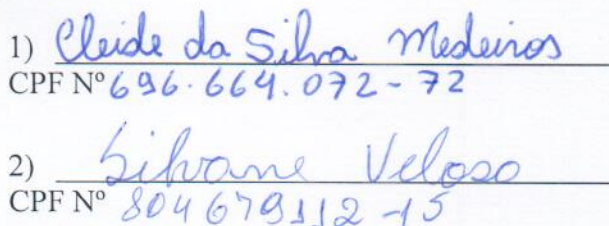 1) Cleide da Silva Medeiros
CPF Nº 696.664.072-72
2) Silvane Veloso
CPF Nº 804679112-15